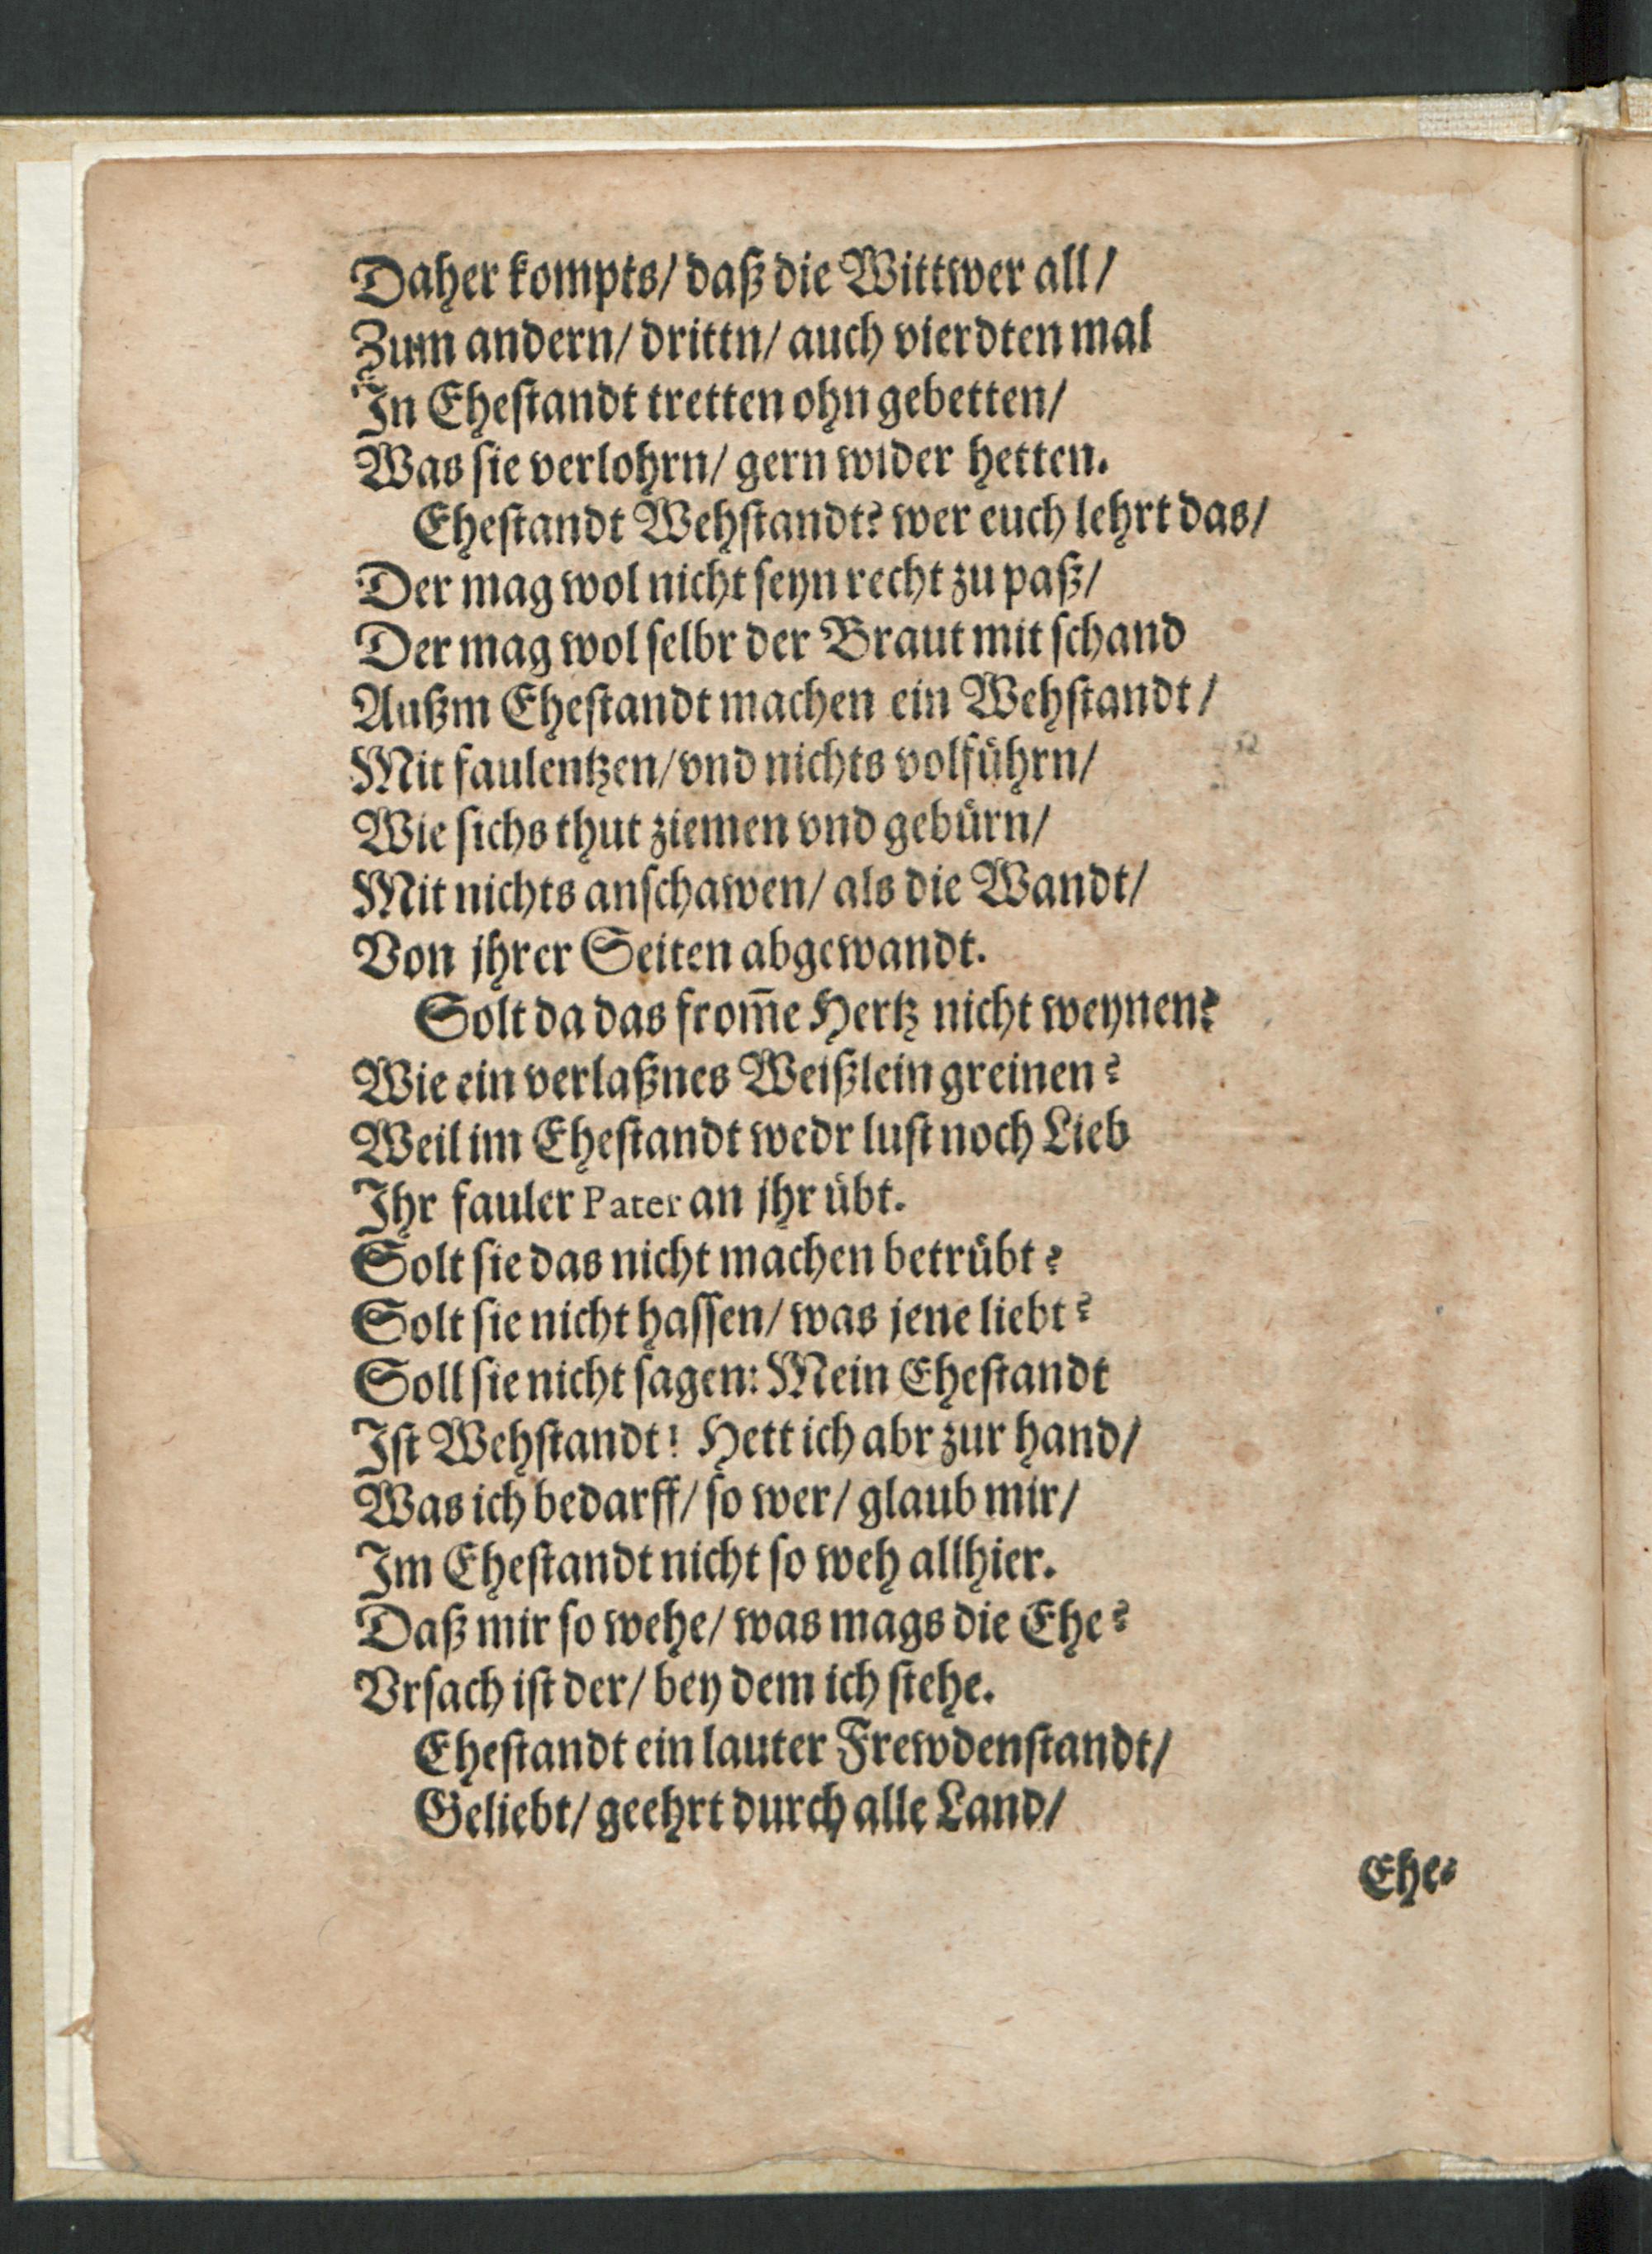 Daher kompts/ daß die Wittwer all/
Zum andern/ drittn/ auch vierdten mal
In Ehestandt tretten ohn gebetten/
Was sie verlohrn/ gern wider hetten.
Ehestandt Wehstandt? wer euch lehrt das/
Der mag wol nicht seyn recht zu paß/
Der mag wol selbr der Braut mit schand
Außm Ehestandt machen ein Wehstandt/
Mit faulentzen/ vnd nichts volführn/
Wie sichs thut ziemen vnd gebürn/
Mit nichts anschawen/ als die Wandt/
Von jhrer Seiten abgewandt.
Solt da das from̃e Hertz nicht weynen?
Wie ein verlaßnes Weißlein greinen?
Weil im Ehestandt wedr lust noch Lieb
Ihr fauler Pater an jhr übt.
Solt sie das nicht machen betrübt?
Solt sie nicht hassen/ was jene liebt?
Soll sie nicht sagen: Mein Ehestandt
Ist Wehstandt! Hett ich abr zur hand/
Was ich bedarff/ so wer/ glaub mir/
Im Ehestandt nicht so weh allhier.
Daß mir so wehe/ was mags die Ehe?
Vrsach ist der/ bey dem ich stehe.
Ehestandt ein lauter Frewdenstandt/
Geliebt/ geehrt durch alle Land/
Ehe-